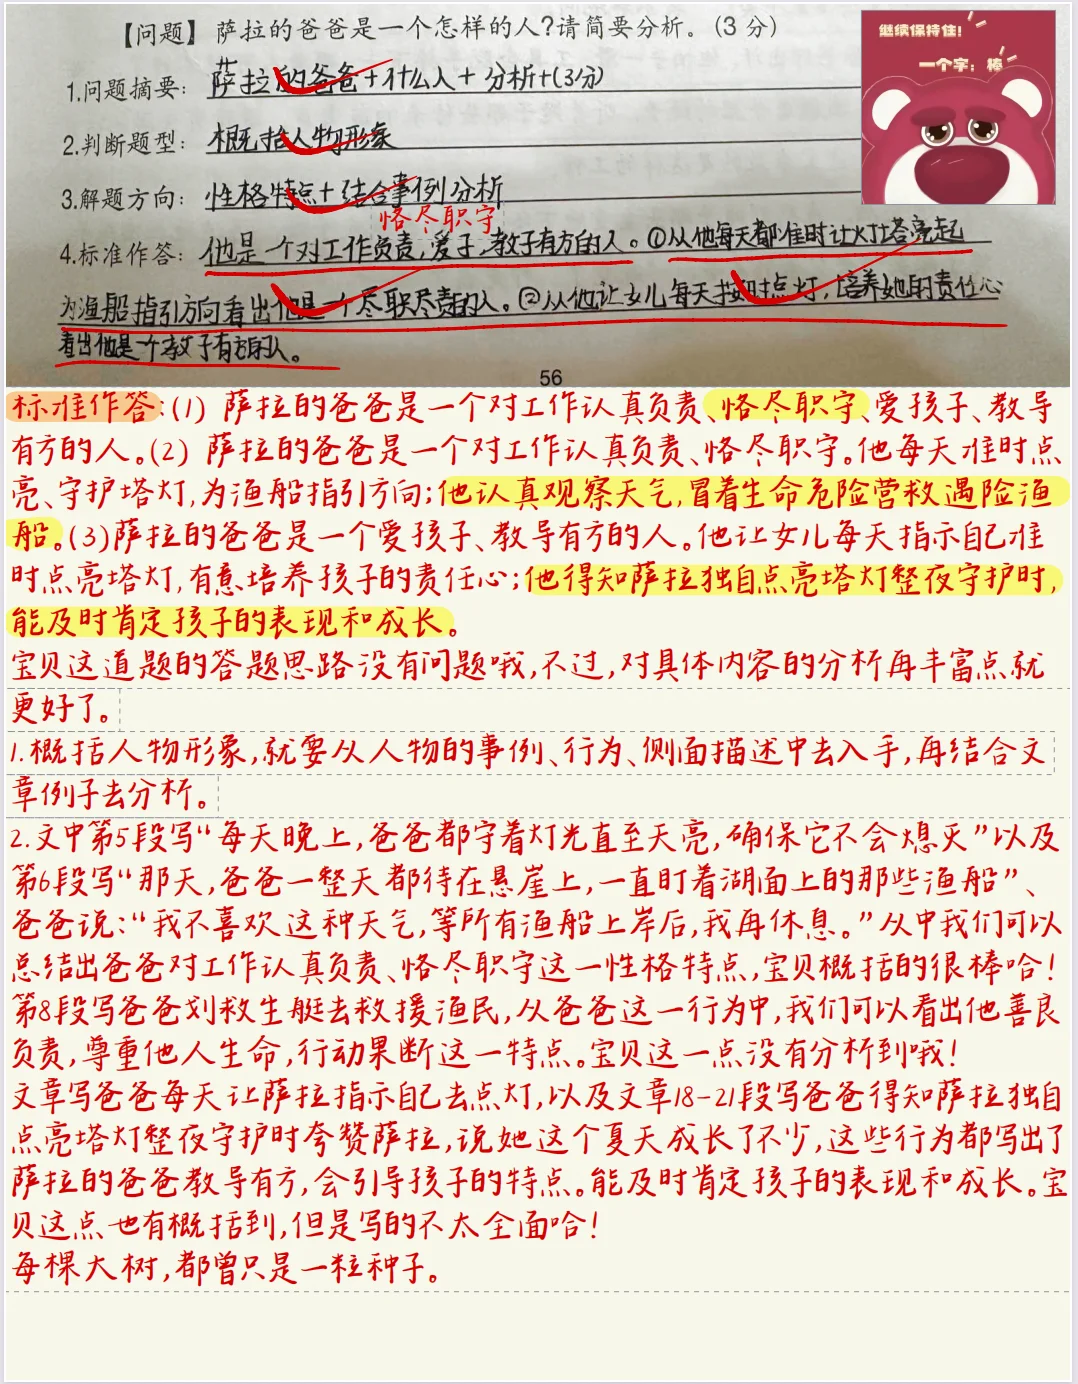 【问题】 萨拉的爸爸是一个怎样的人?请简要分析。(3 分)
继续保持住!
一个字：棒
1.问题摘要: 萨拉的爸爸+什么人+分析+(3分)
2.判断题型: 概括人物形象
3.解题方向: 性格特点+结合事例分析
恪尽职守
4.标准作答: 他是一个对工作负责,爱子,教子有方的人。①从他每天都准时让灯塔亮起
为渔船指引方向看出他是一个尽职尽责的人。②从他让女儿每天按时点灯,培养她的责任心
看出他是个教子有方的人。
56
标准作答:(1) 萨拉的爸爸是一个对工作认真负责、恪尽职守、爱孩子、教导
有方的人。(2) 萨拉的爸爸是一个对工作认真负责、恪尽职守。他每天准时点
亮、守护塔灯,为渔船指引方向;他认真观察天气,冒着生命危险营救遇险渔
船。(3)萨拉的爸爸是一个爱孩子、教导有方的人。他让女儿每天指示自己准
时点亮塔灯,有意培养孩子的责任心;他得知萨拉独自点亮塔灯整夜守护时,
能及时肯定孩子的表现和成长。
宝贝这道题的答题思路没有问题哦,不过,对具体内容的分析再丰富点就
更好了。
1.概括人物形象,就要从人物的事例、行为、侧面描述中去入手,再结合文
章例子去分析。
2.文中第5段写“每天晚上,爸爸都守着灯光直至天亮,确保它不会熄灭”以及
第6段写“那天,爸爸一整天都待在悬崖上,一直盯着湖面上的那些渔船”、
爸爸说:“我不喜欢这种天气,等所有渔船上岸后,我再休息。”从中我们可以
总结出爸爸对工作认真负责、恪尽职守这一性格特点,宝贝概括的很棒哈!
第8段写爸爸划救生艇去救援渔民,从爸爸这一行为中,我们可以看出他善良
负责,尊重他人生命,行动果断这一特点。宝贝这一点没有分析到哦!
文章写爸爸每天让萨拉指示自己去点灯,以及文章18-21段写爸爸得知萨拉独自
点亮塔灯整夜守护时夸赞萨拉,说她这个夏天成长了不少,这些行为都写出了
萨拉的爸爸教导有方,会引导孩子的特点。能及时肯定孩子的表现和成长。宝
贝这点也有概括到,但是写的不太全面哈!
每棵大树,都曾只是一粒种子。